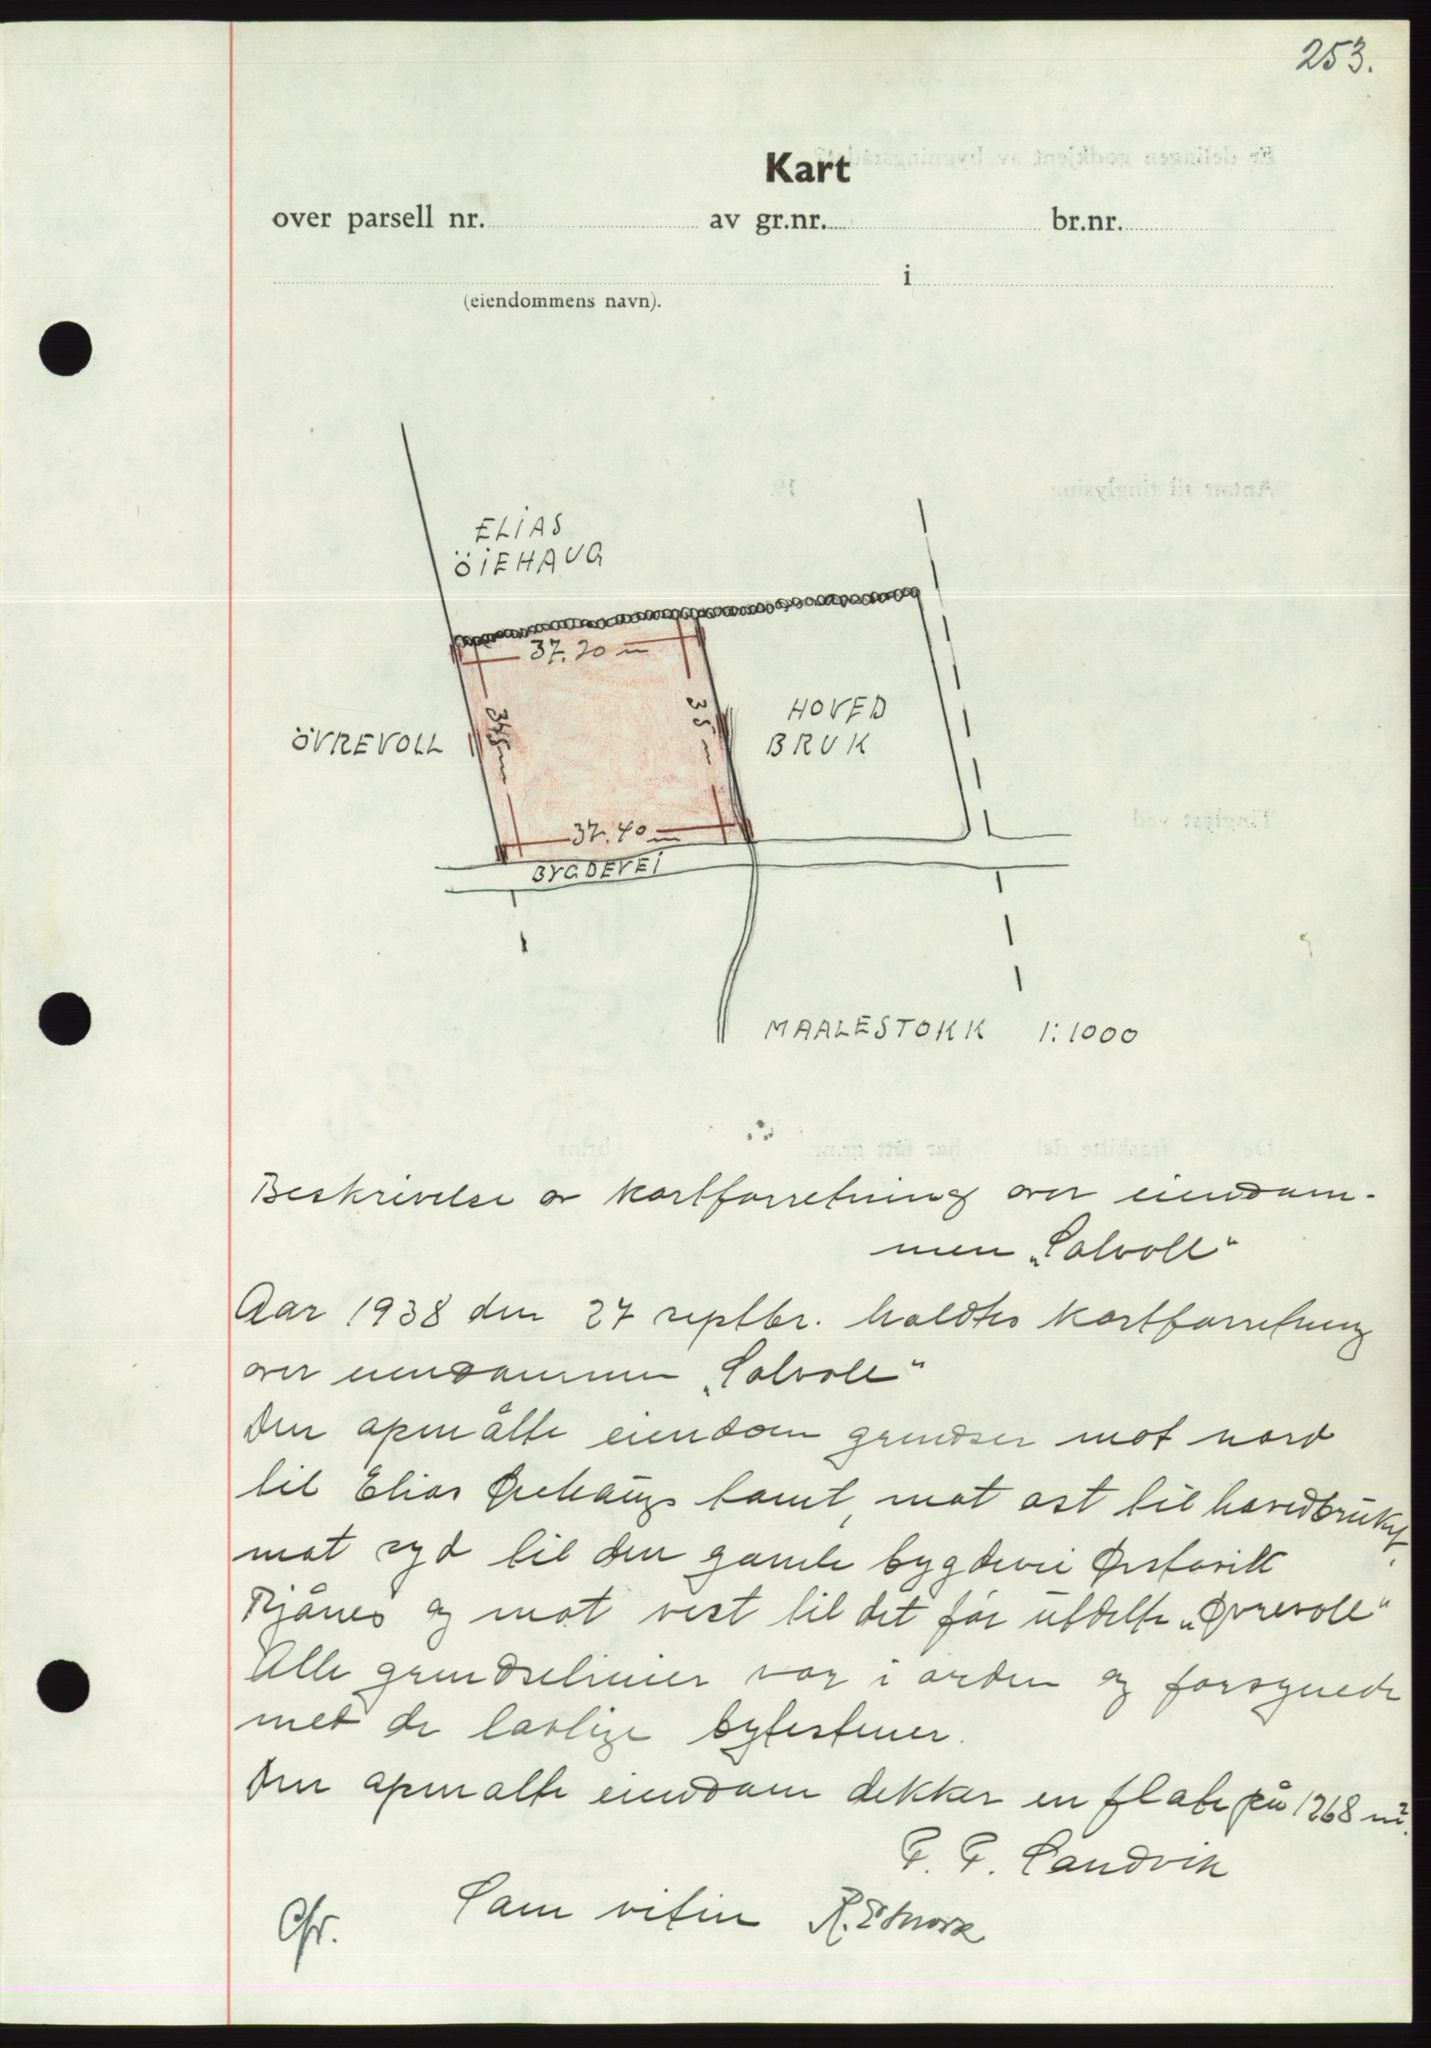 253.
Kart
over parsell nr. av gr.nr. br.nr.
i
(eiendommens navn).
ELIAS
ÖIEHAUG
37.20 m
ÖVREVOLL
34.5 m
35 m
HOVED
BRUK
37.40 m
BYGDEVEI
MAALESTOKK 1:1000
Beskrivelse av kartforretning over eiendom-
men „Solvoll“
Aar 1938 den 27 septbr. holdtes kartforretning
over eiendommen „Solvoll“
Den opmålte eiendom grendser mot nord
til Elias Øiehaugs tomt, mot øst til hovedbruket,
mot syd til den gamle bygdevei Ørstavik
Rjånes og mot vest til det før utdelte „Øvrevoll“
Alle grendselinier var i orden og forsynede
med de lovlige bytestener.
Den opmålte eiendom dekker en flate på 1268 m².
P. P. Sandvik
Som vitne R. E.